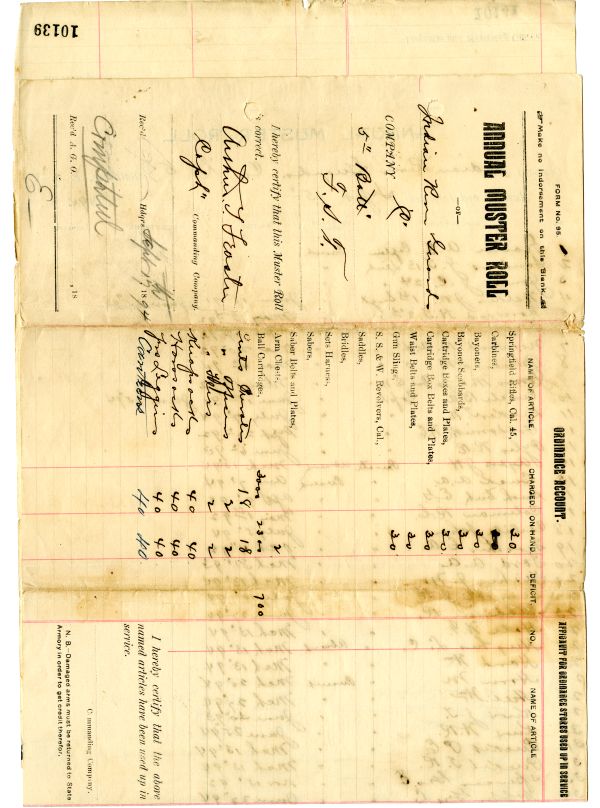 10139
FORM No. 95
Make no Indorsement on this Blank.
ANNUAL MUSTER ROLL
—OF—
Indian River Guards
COMPANY "D"
5th Batt
F. S. T.
I hereby certify that this Muster Roll
is correct.
Capt
Commanding Company.
Rec'd
Hdqrs. Sept 1894
Computed
Rec'd A. G. O.
, 18
ORDNANCE ACCOUNT.
NAME OF ARTICLE. CHARGED. ON HAND. DEFICIT.
Springfield Rifles, Cal. 45, 30
Carbines,
Bayonets, 30
Bayonet Scabbards, 30
Cartridge Boxes and Plates, 30
Cartridge Box Belts and Plates, 30
Waist Belts and Plates, 30
Gun Slings, 30
S. & W. Revolvers, Cal.,
Saddles,
Bridles,
Sets Harness,
Sabers,
Saber Belts and Plates,
Arm Chests, 2
Ball Cartridges, 3000 2300 700
18 18
2 2
2 2
Knapsacks 40 40
40 40
prs Legins 40 40
Canteens 40 40
AFFIDAVIT FOR ORDNANCE STORES USED UP IN SERVICE
NO. NAME OF ARTICLE
I hereby certify that the above
named articles have been used up in
service.
Commanding Company.
N. B.—Damaged arms must be returned to State
Armory in order to get credit therefor.